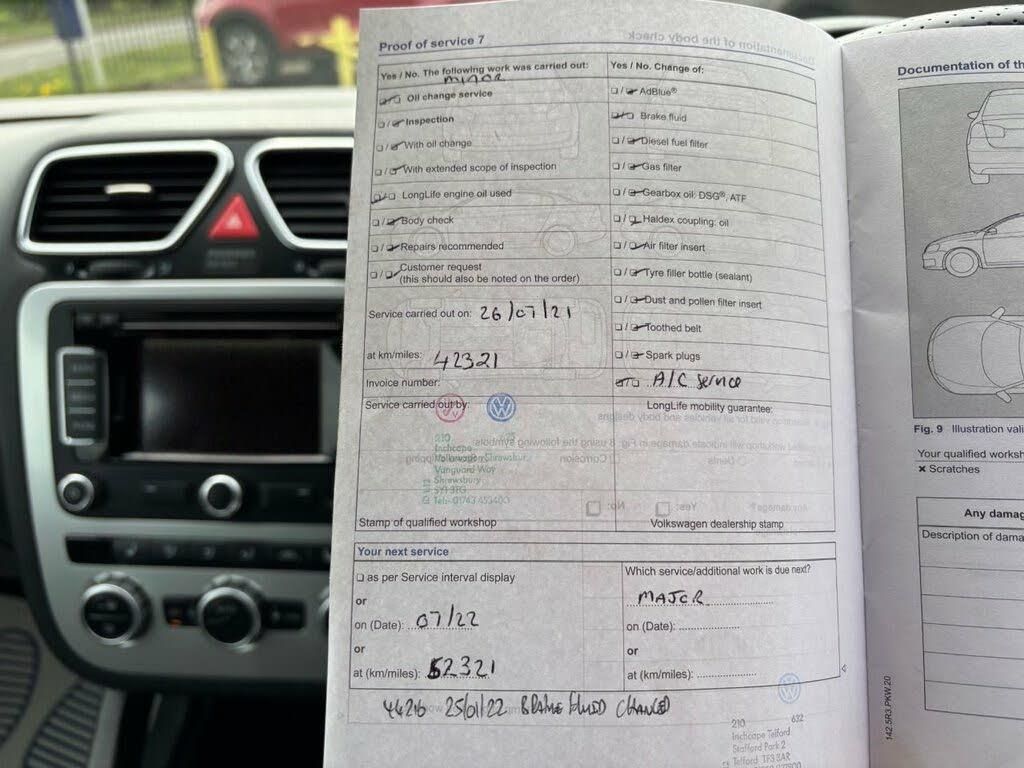 Proof of service 7
Yes / No. The following work was carried out:
minor
Oil change service
Inspection
With oil change
With extended scope of inspection
LongLife engine oil used
Body check
Repairs recommended
Customer request
(this should also be noted on the order)
Service carried out on: 26/07/21
at km/miles: 42321
Invoice number:
Service carried out by:
210
Inchcape
Volkswagen Shrewsbury
Vanguard Way
Shrewsbury
SY1 3TG
Stamp of qualified workshop
Yes / No. Change of:
AdBlue®
Brake fluid
Diesel fuel filter
Gas filter
Gearbox oil: DSG®, ATF
Haldex coupling: oil
Air filter insert
Tyre filler bottle (sealant)
Dust and pollen filter insert
Toothed belt
Spark plugs
A/C Service
LongLife mobility guarantee:
Volkswagen dealership stamp
Your next service
as per Service interval display
or
on (Date): 07/22
or
at (km/miles): 52321
Which service/additional work is due next?
MAJOR
on (Date):
or
at (km/miles):
25/01/22 BRAKE FLUID CHANGED
210 632
Inchcape Telford
Stafford Park 2
Telford TF3 3AR
142.5R3.PKW.20
Documentation of th
Fig. 9 Illustration vali
Your qualified worksh
× Scratches
Any damag
Description of dama